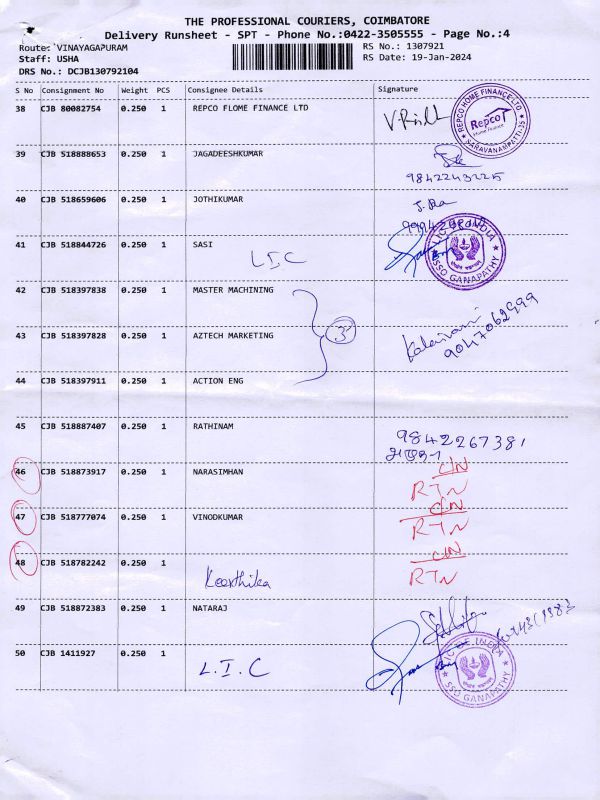 THE PROFESSIONAL COURIERS, COIMBATORE
Delivery Runsheet - SPT - Phone No.:0422-3505555 - Page No.:4
Route: VINAYAGAPURAM RS No.: 1307921
Staff: USHA RS Date: 19-Jan-2024
DRS No.: DCJB130792104
S No Consignment No Weight PCS Consignee Details Signature
38 CJB 80082754 0.250 1 REPCO FLOME FINANCE LTD
REPCO HOME FINANCE LTD
Repco
Home Finance
SARAVANAMPATTI-35
39 CJB 518888653 0.250 1 JAGADEESHKUMAR
9842243225
40 CJB 518659606 0.250 1 JOTHIKUMAR
41 CJB 518844726 0.250 1 SASI
LIC
LIC OF INDIA
SSO GANAPATHY
42 CJB 518397838 0.250 1 MASTER MACHINING
43 CJB 518397828 0.250 1 AZTECH MARKETING
3
Kalaivani
9047062999
44 CJB 518397911 0.250 1 ACTION ENG
45 CJB 518887407 0.250 1 RATHINAM
9842267381
46 CJB 518873917 0.250 1 NARASIMHAN
C/N
RTN
47 CJB 518777074 0.250 1 VINODKUMAR
C/N
RTN
48 CJB 518782242 0.250 1
Keerthika
C/N
RTN
49 CJB 518872383 0.250 1 NATARAJ
50 CJB 1411927 0.250 1
L.I.C
LIC OF INDIA
SSO GANAPATHY